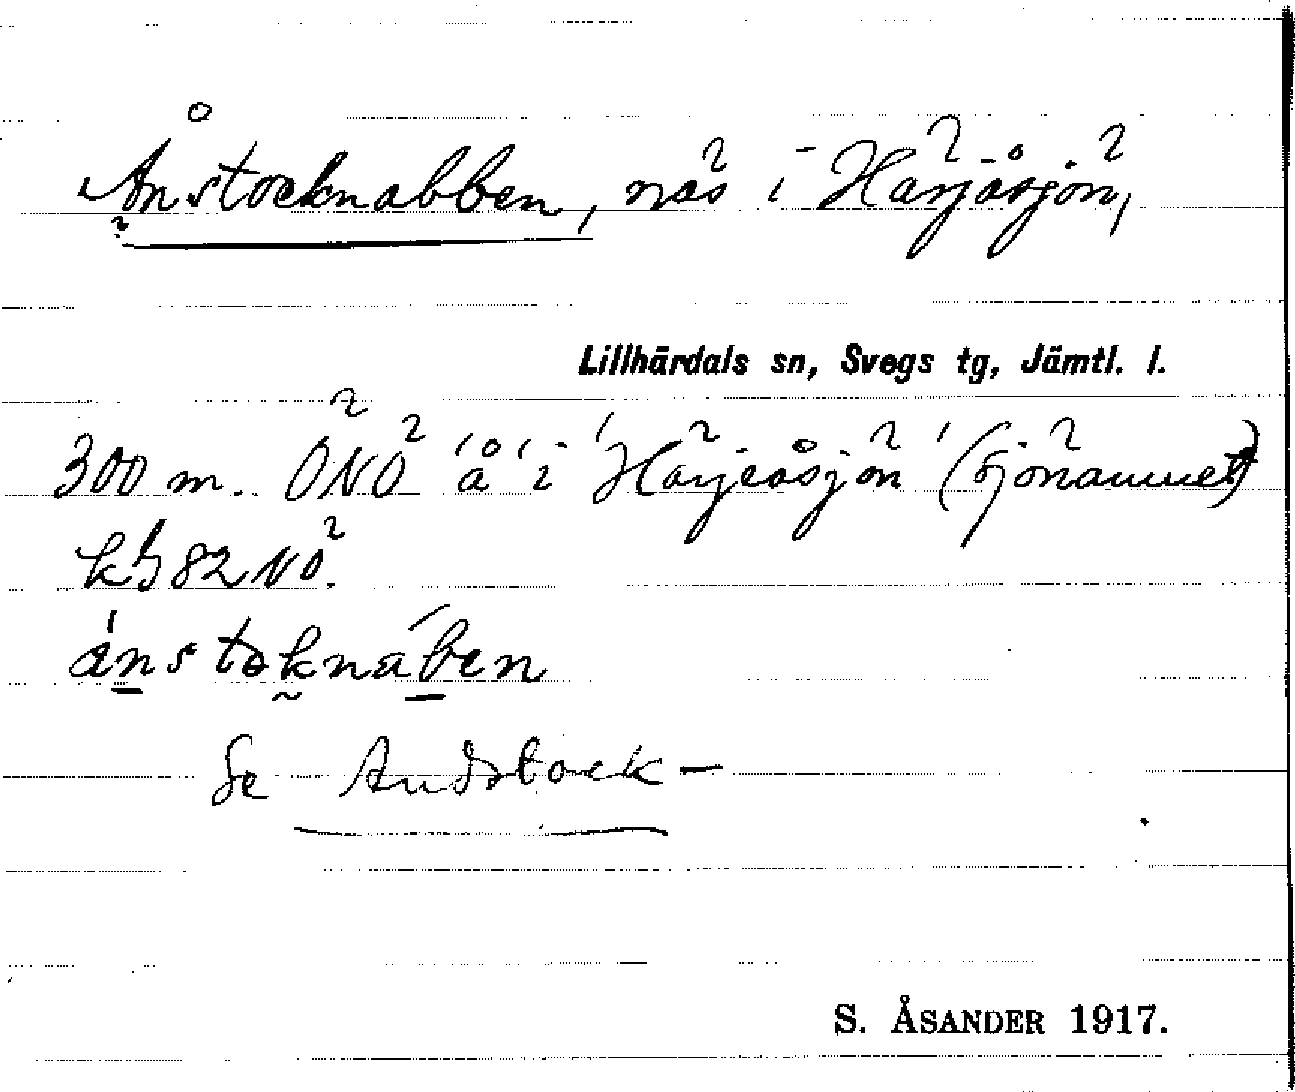 Ånstocknabben, näs i Härjåsjön,
Lillhärdals sn, Svegs tg, Jämtl. l.
300 m. ONO 'å' i 'Härjeåsjön' (sjönamnet)
kbl 82 NO.
ánstoknában
Se Andstock-
S. ÅSANDER 1917.